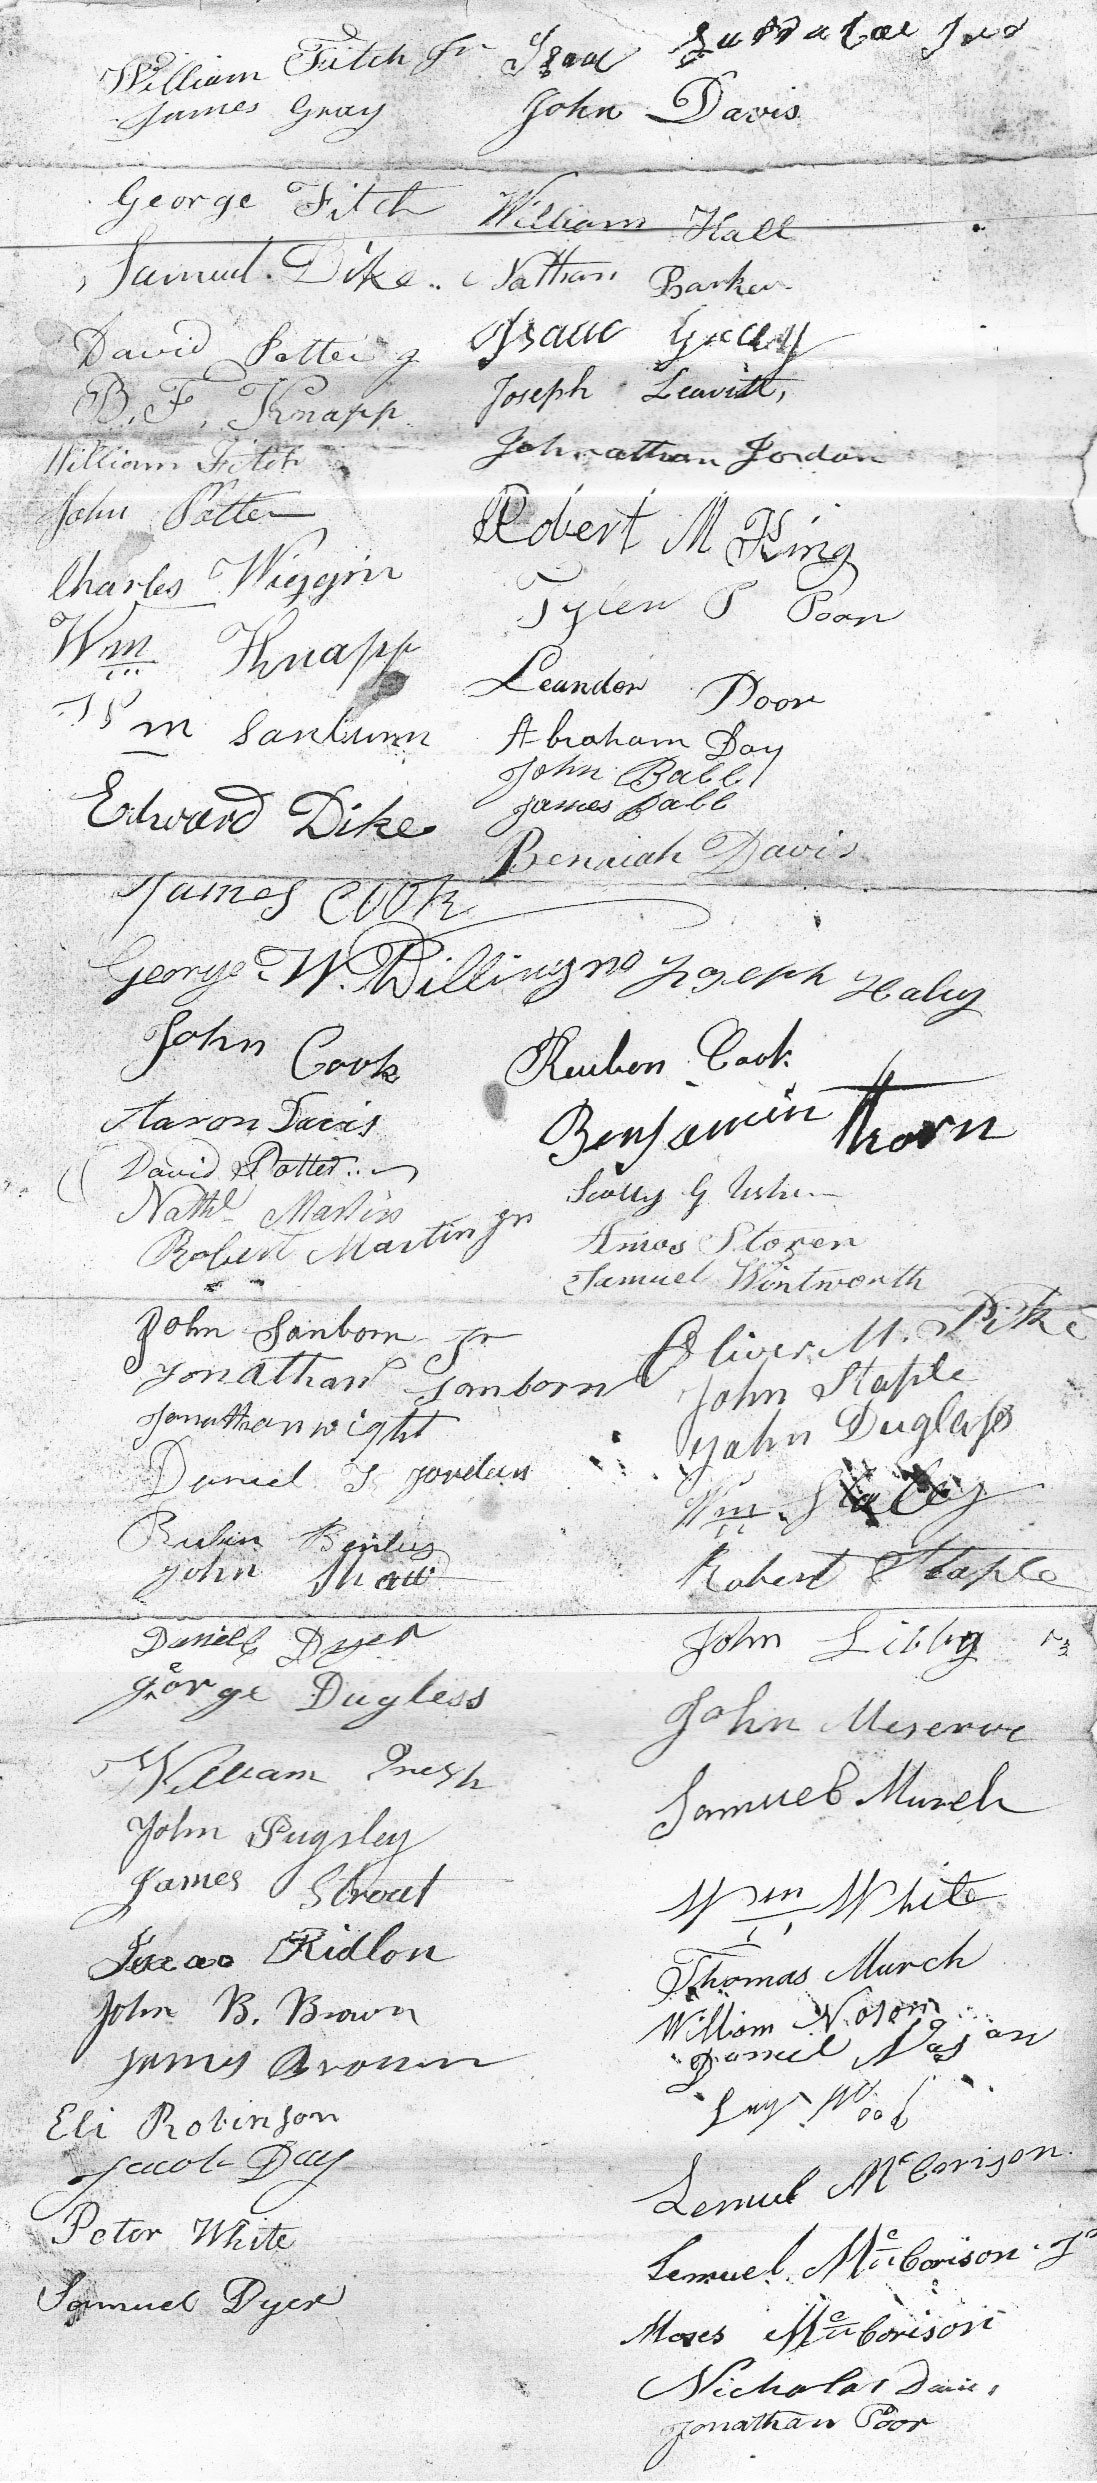 William Fitch Jr
James Gray
George Fitch
Samuel Dike
David Potter
B. F. Knapp
William Fitch
John Potter
Charles Wiggin
Wm Knapp
Wm Sanburn
Edward Dike
James Cook
George W. Billings
John Cook
Aaron Davis
David Potter
Nathl Martin
Robert Martin Jr
John Sanborn Jr
Jonathan Sanborn
Jonathan wight
Daniel Jordan
John Shaw
Daniel Dyer
George Dugless
William
John Pugsley
James Strout
Ridlon
John B. Brown
James Brown
Eli Robinson
Jacob Day
Peter White
Samuel Dyer
Isaac
John Davis
William Hall
Nathan Barker
Isaac
Joseph Leavitt,
Johnathan Jordan
Robert M King
Tyler P Poor
Leander Poor
Abraham Day
John Babb
James Babb
Benaiah Davis
Joseph Haley
Reuben Cook
Benjamin Thorn
G
Amos Storer
Samuel Wintworth
Oliver M. Pike
John Staple
John Duglass
Wm Staley
Robert Staple
John Libby
John Meserve
Samuel Murch
Wm White
Thomas Murch
William Nason
Daniel Nason
Lemuel McCorison
Lemuel McCorison Jr
Moses McCorison
Nicholas Davis
Jonathan Poor